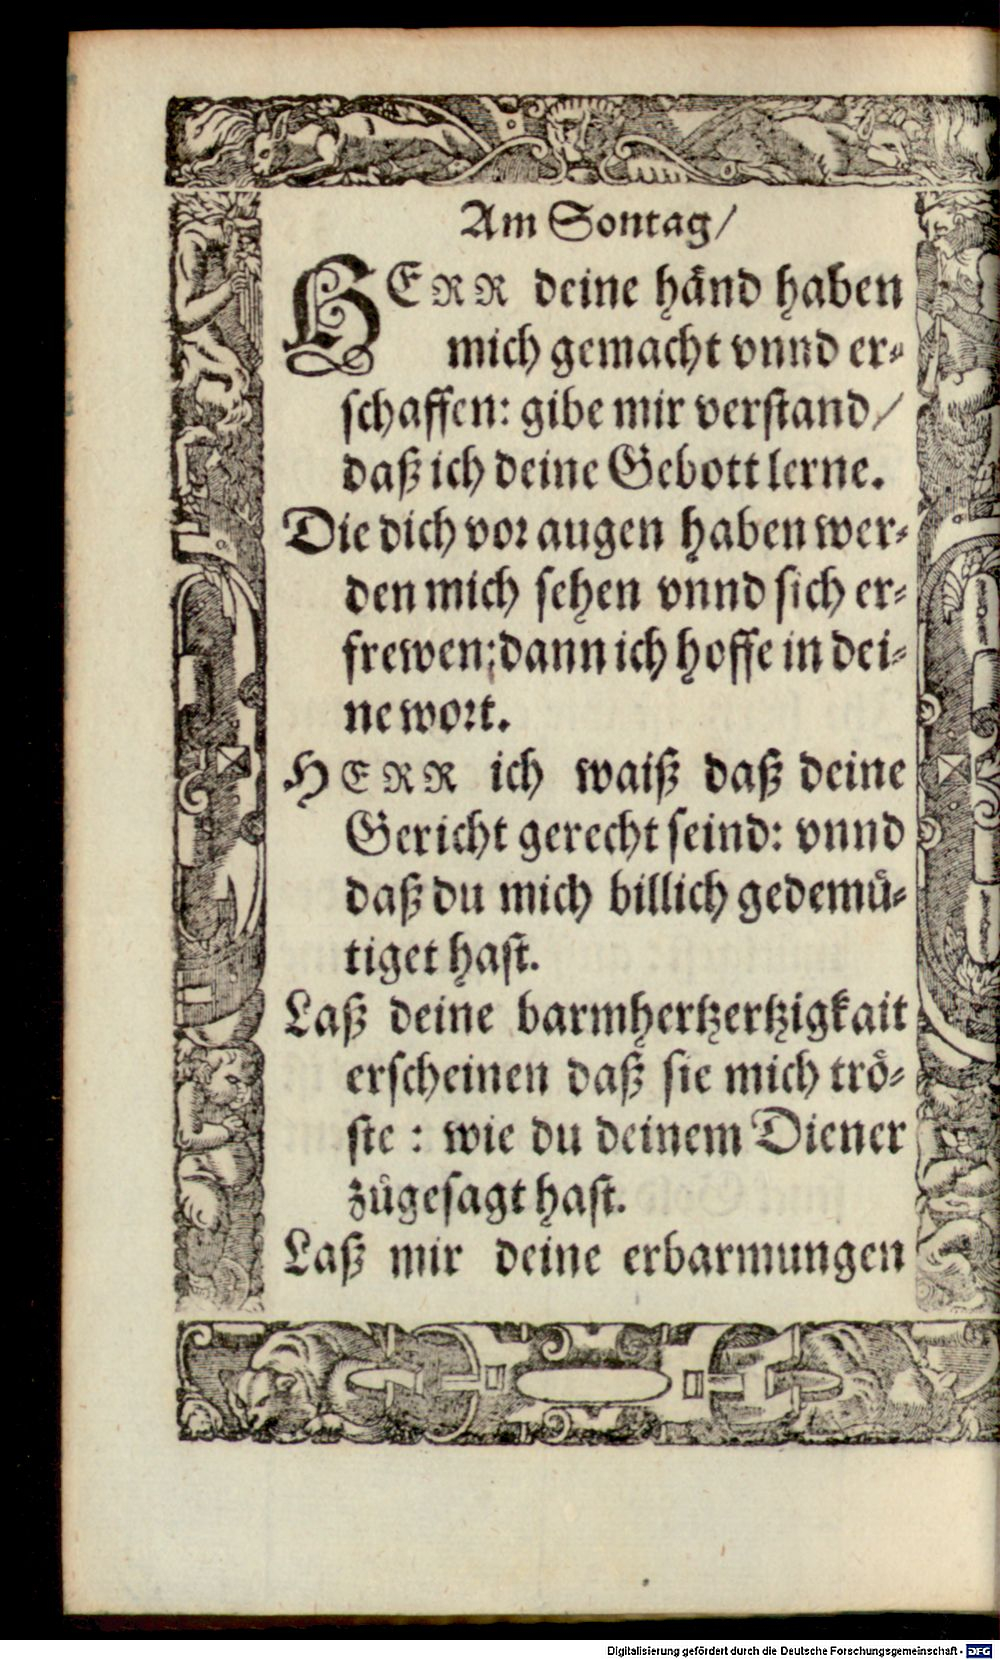 Am Sontag/
HERR deine hånd haben
mich gemacht vnnd er⸗
schaffen: gibe mir verstand/
daß ich deine Gebott lerne.
Die dich vor augen haben wer⸗
den mich sehen vnnd sich er⸗
frewen: dann ich hoffe in dei⸗
ne wort.
HERR ich waiß daß deine
Gericht gerecht seind: vnnd
daß du mich billich gedemü⸗
tiget hast.
Laß deine barmhertzertzigkait
erscheinen daß sie mich trö⸗
ste : wie du deinem Diener
zůgesagt hast.
Laß mir deine erbarmungen
Digitalisierung gefördert durch die Deutsche Forschungsgemeinschaft - DFG